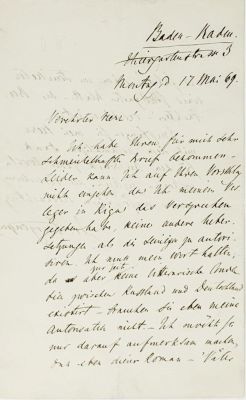 Baden-Baden.
Thiergartenstrasse 3
Montag d. 17 Mai 69.
Verehrter Herr
Ich habe Ihren für mich sehr
schmeichelhaften Brief bekommen –
Leider kann ich auf Ihren Vorschlag
nicht eingehen, da ich meinem Ver
leger in Riga das Versprechen
gegeben habe, keine andere Ueber
setzung als die seinige zu autori
siren. Ich muss mein Wort halten,
da aber keine litterarische Conven
tion zwischen Russland und Deutschland
existirt – brauchen Sie eben meine
Autorisation nicht. – Ich möchte Sie
nur darauf aufmerksam machen,
dass eben dieser Roman – "Väter